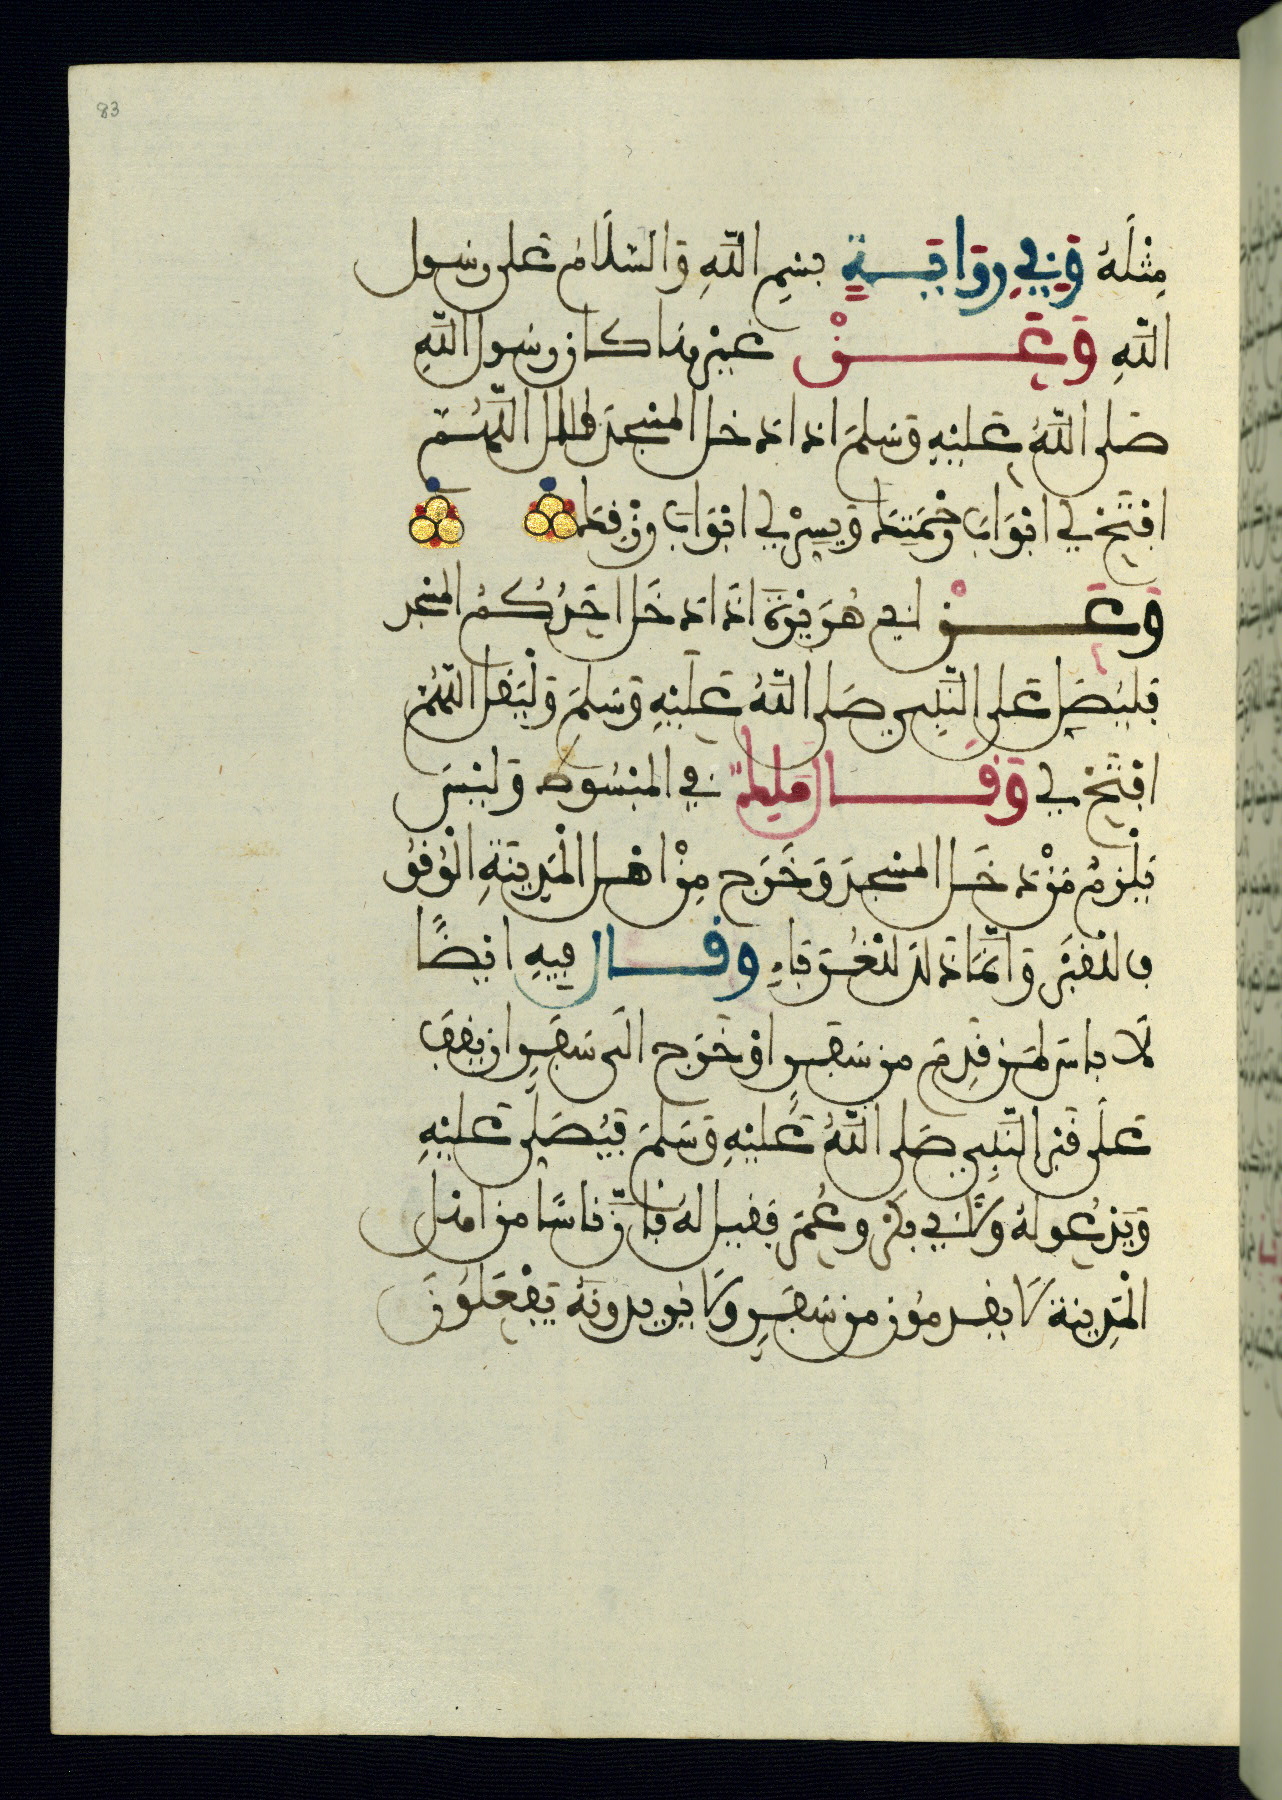 83
مِثْلَهُ وَفِي رِوَايَةٍ بِسْمِ اللَّهِ وَالسَّلَامُ عَلَى رَسُولِ
اللَّهِ وَعَنْ غَيْرِهِمَا كَانَ رَسُولُ اللَّهِ
صَلَى اللَّهُ عَلَيْهِ وَسَلَمَ اذا دَخل المسْجِدَ قال اللَّهُمَّ
افْتَحْ لِي ابْوَابَ رَحْمَتِكَ وَيَسِرْ لِي ابْوَابَ رِزْقِكَ
وَعَنْ ابي هُرَيْرَةَ اذَا دَخَل احَدُكُمُ المسْجد
فَليُصَلِ عَلى النَّبِي صَلى اللَّهُ عَلَيْهِ وَسَلمَ وَلْيَقُل اللَّهُمَّ
افْتَحْ لِي وَقَالَ مَلِك فِي المَبْسُوط وَليْسَ
يَلْزَمُ مَنْ دَخَل المسْجِدَ وَخَرَج مِنْ اهْل الْمَدِينَةِ الْوُقُوف
بالقَبْرِ وَانَّمَا ذَلكَ للْغُرَبَاءِ وقال فِيهِ ايْضًا
لَا باسَ لمَن قَدِمَ من سَفَرٍ اوْ خَرَج الَى سَفَرٍ ان يقِفَ
عَلَى قَبْرِ النَّبِي صَلى اللَّهُ عَلَيْهِ وَسَلمَ فَيُصَلِي عَليْهِ
وَيَدْعُو لهُ وَلابي بكْرٍ وعُمَرَ فقيل لهُ فإنَّ ناسًا من اهْل
الْمَدِينة لَا يقدمُون من سَفَرٍ وَلا يُريدونَهُ يَفْعَلُونَ